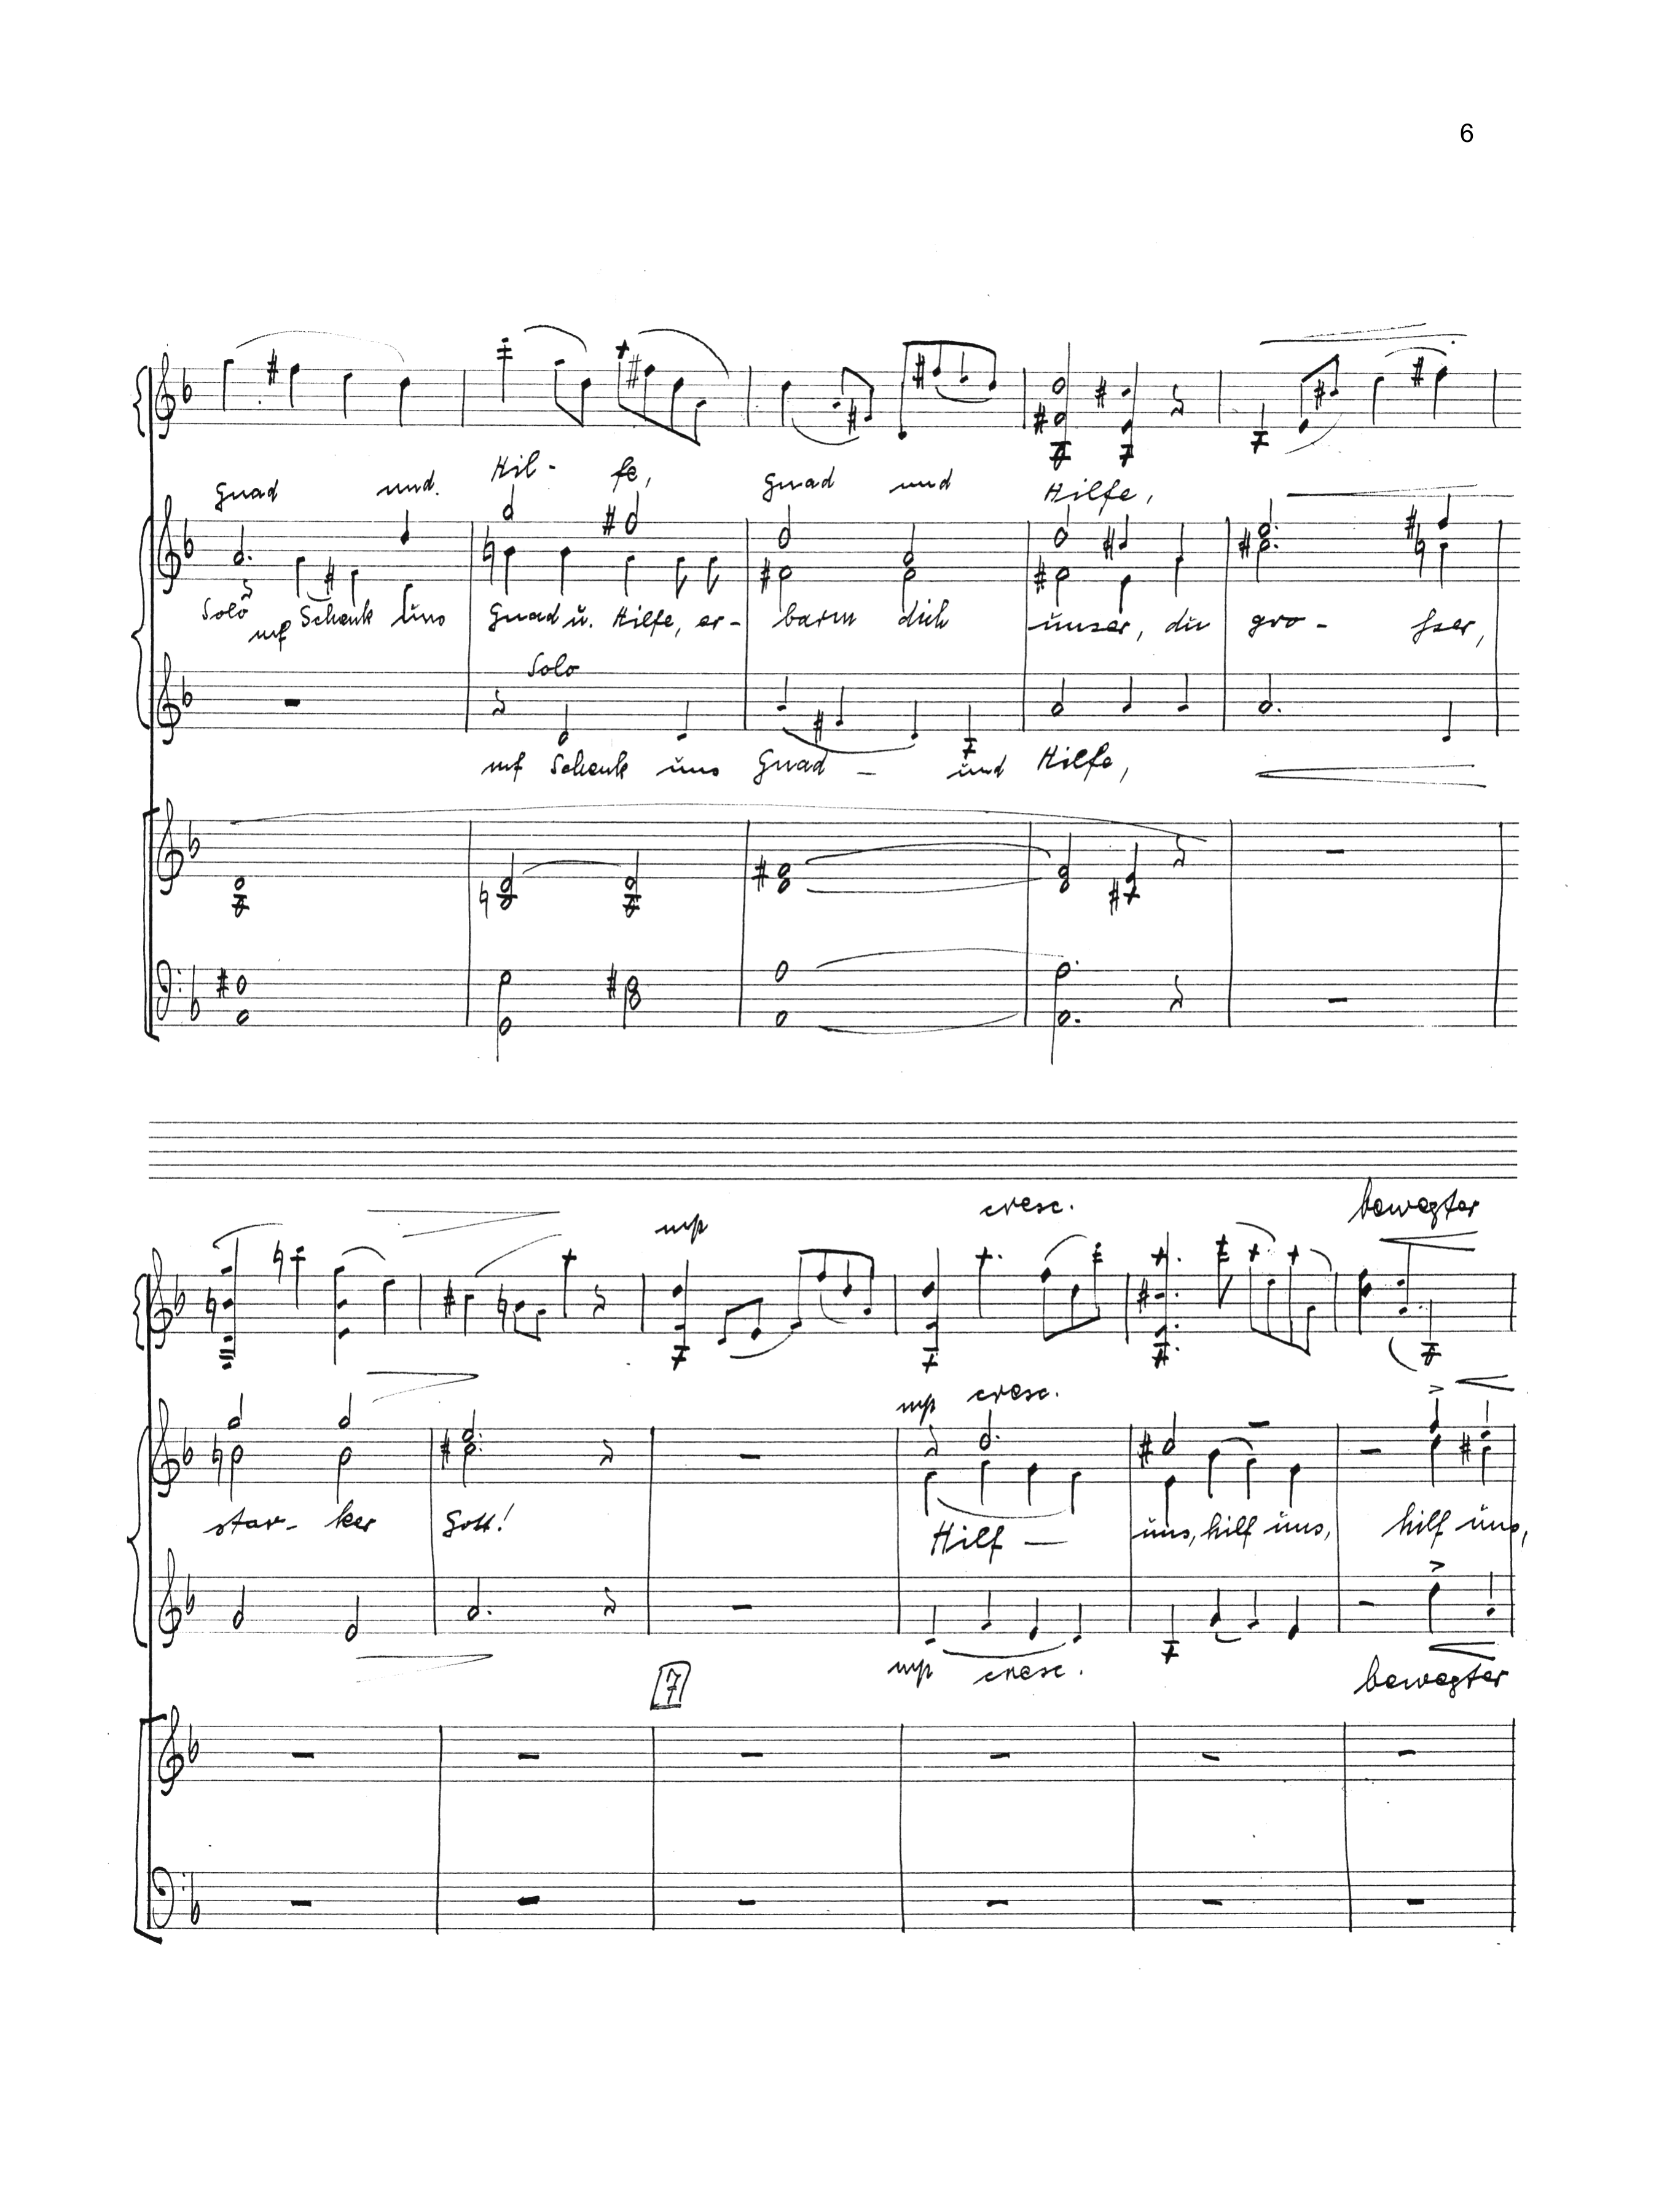 6
Gnad und Hil- fe, Gnad und Hilfe,
Solo mf Schenk uns Gnad u. Hilfe, er- barm dich unser, du gro- sser,
Solo
mf Schenk uns Gnad – und Hilfe,
bewegter
mp cresc.
mp cresc.
star- ker Gott! Hilf — uns, hilf uns, hilf uns,
mp cresc. bewegter
7